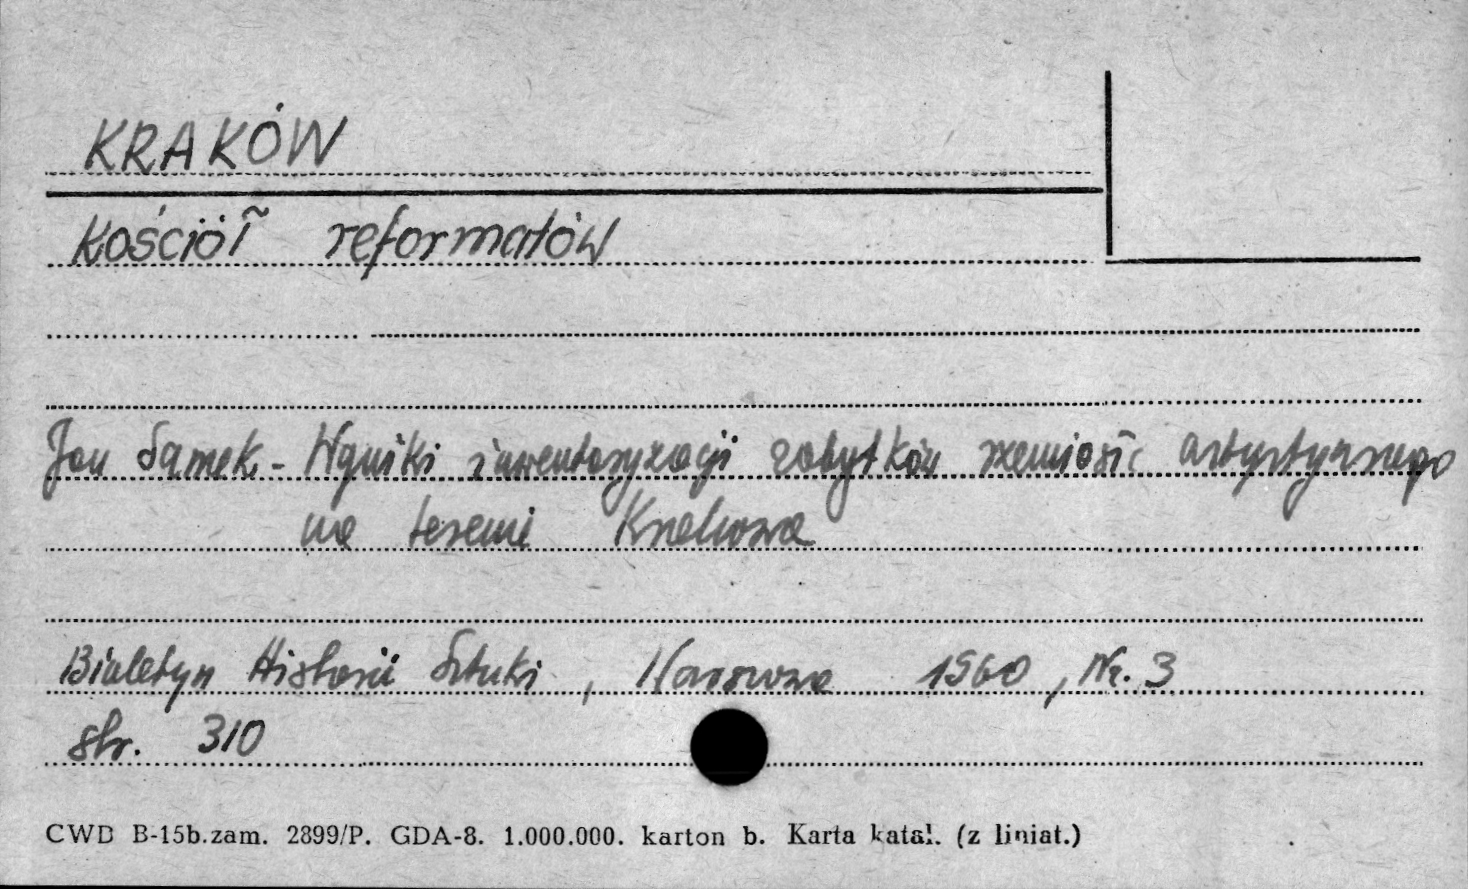 KRAKÓW
Kościół reformatów
Jan Samek - Wyniki inwentaryzacji zabytków rzemiosła artystycznego
na terenie Krakowa
Biuletyn Historii Sztuki, Warszawa 1960, Nr. 3
str. 310
CWD B-15b.zam. 2899/P. GDA-8. 1.000.000. karton b. Karta katal. (z liniat.)